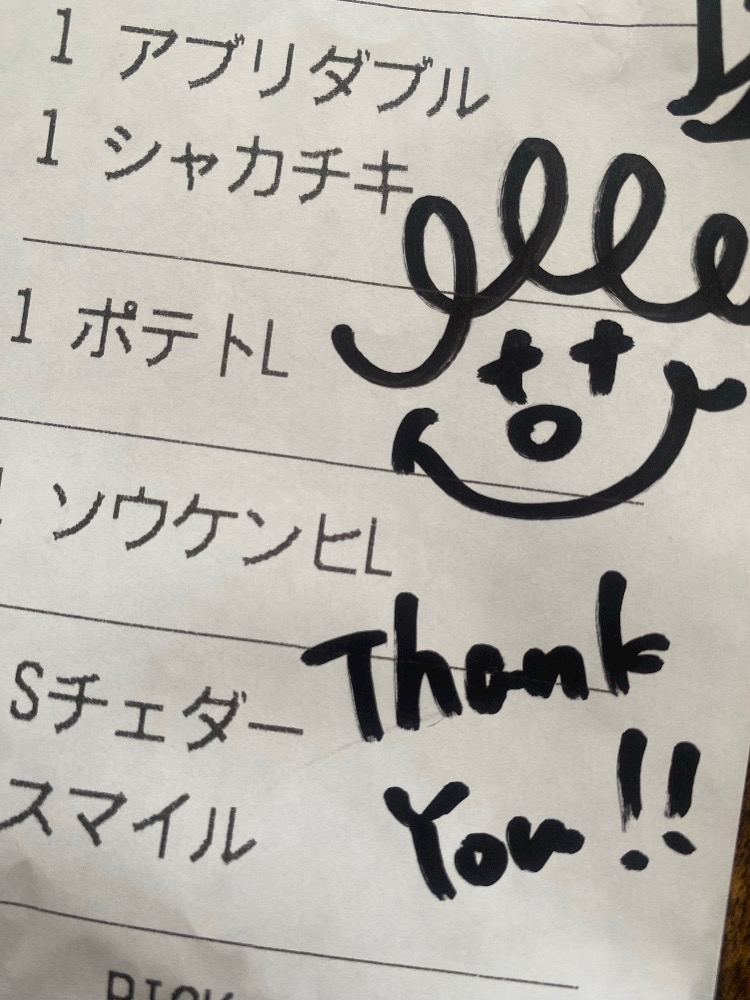 1 アブリダブル
1 シャカチキ
1 ポテトL
ソウケンビL
Sチェダー
スマイル
Thank
You!!